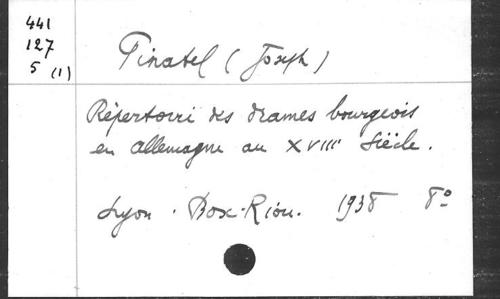 441
127
5 (1)
Pinatel (Joseph)
Répertoire des drames bourgeois
en Allemagne au XVIIIe Siècle.
Lyon. Bosc-Riou. 1938 8°